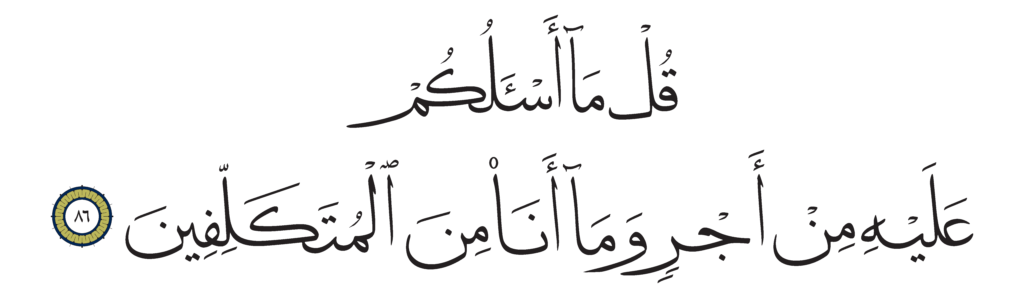 قُلْ مَآ أَسْـَٔلُكُمْ
عَلَيْهِ مِنْ أَجْرٍ وَمَآ أَنَا۠ مِنَ ٱلْمُتَكَلِّفِينَ ٨٦